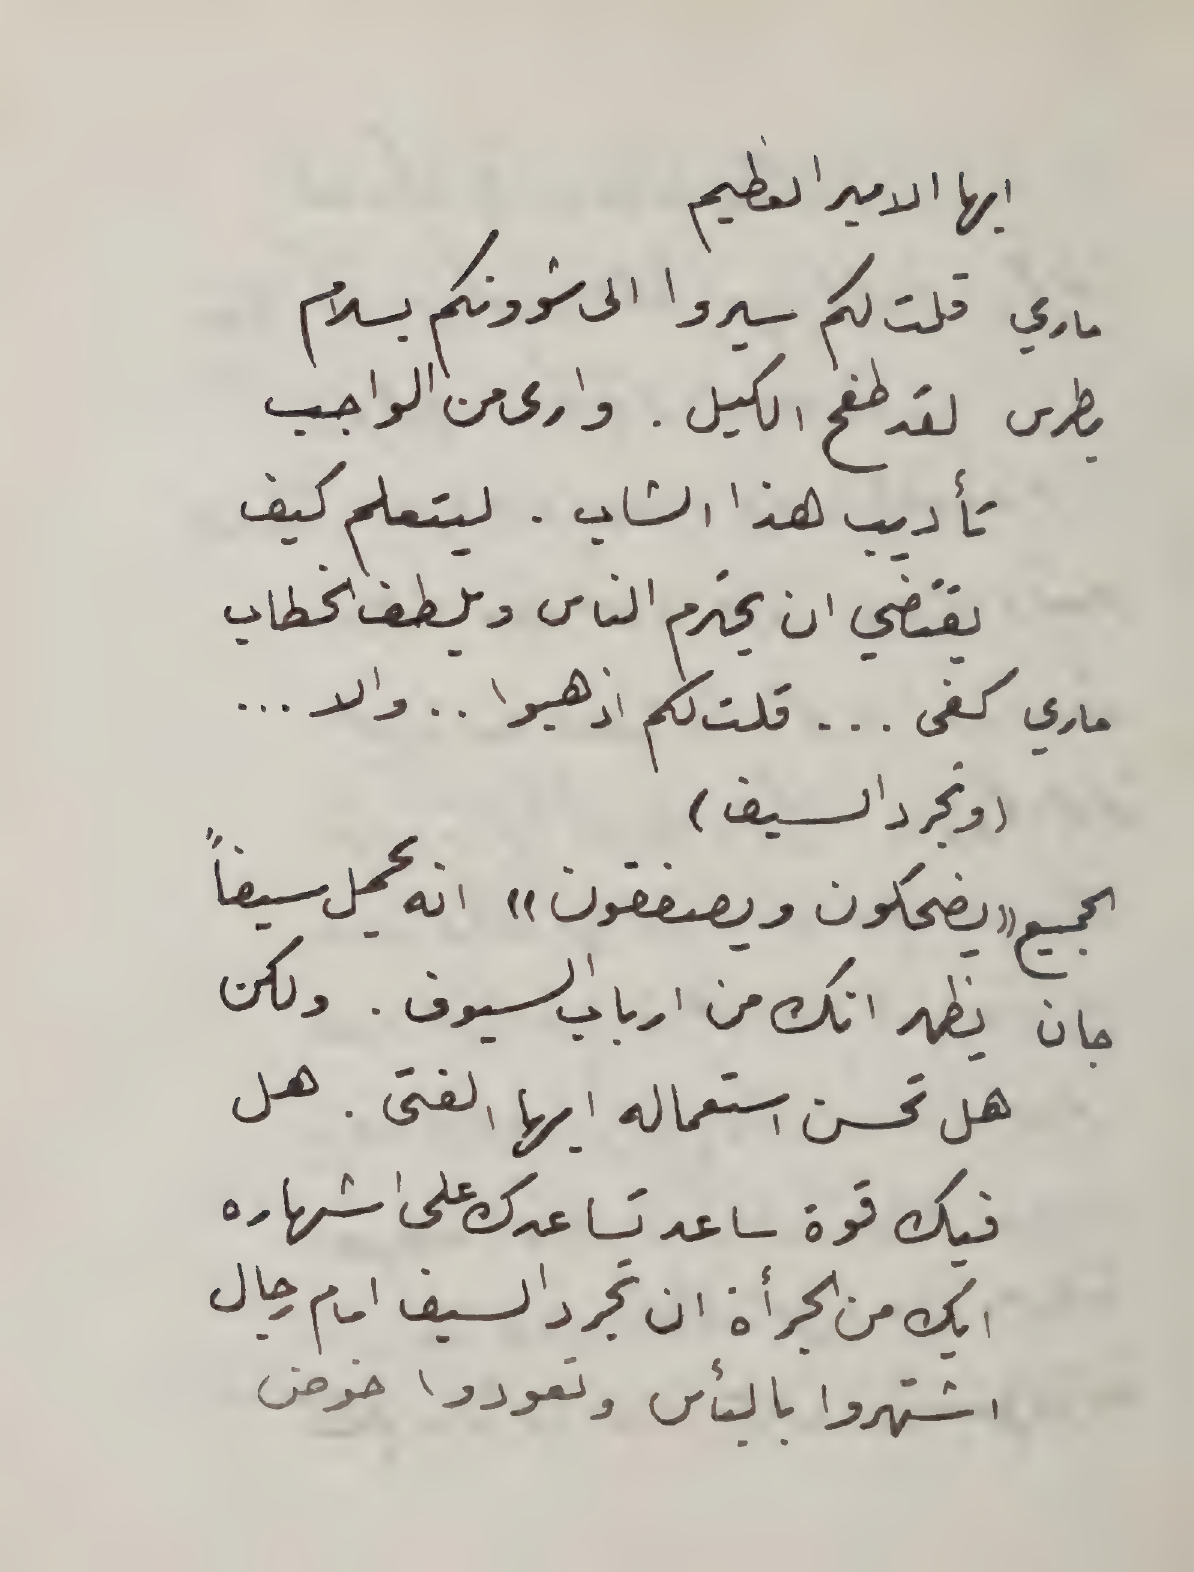 ايها الامير العظيم
ماري قلت لكم سيروا الى شوونكم بسلام
بطرس لقد طفح الكيل . وارى من الواجب
تأديب هذا الشاب . ليتعلم كيف
يقتضي ان يحترم الناس ويلطف الخطاب
ماري كفى ... قلت لكم اذهبوا .. والا ...
(وتجرد السيف)
الجميع «يضحكون ويصفقون» انه يحمل سيفاً
جان يظهر انك من ارباب السيوف . ولكن
هل تحسن استعماله ايها الفتى . هل
فيك قوة ساعد تساعدك على اشهاره
ايك من الجرأة ان تجرد السيف امام رجال
اشتهروا بالبأس وتعودوا خوض